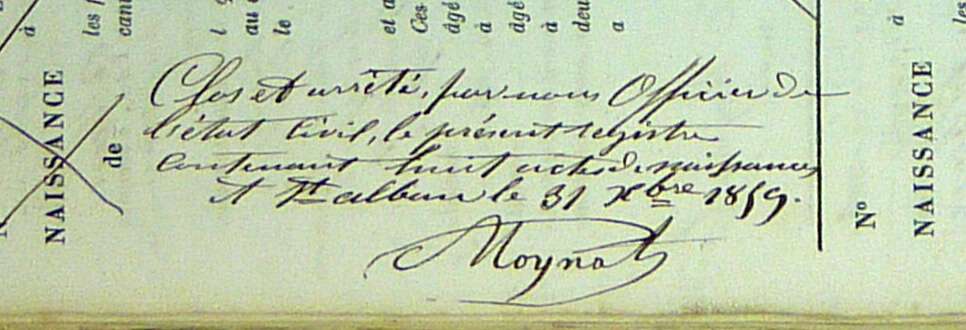 à
les
NAISSANCE
de
l
au
le
et a
Ces
âgé
à
âgé
à
deu
a
Clos et arrêté, par nous Officier de
l'état civil, le présent registre
contenant huit actes de naissances
A St alban le 31 Xbre 1859.
Moynat
N°
NAISSANCE
à
les